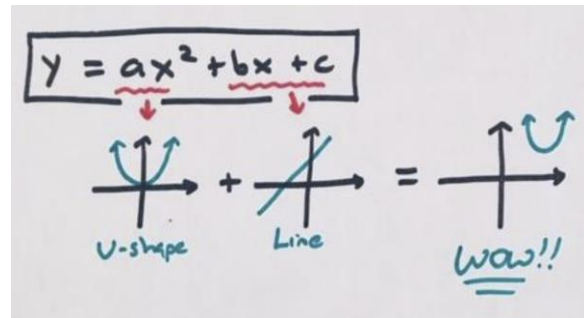 y = ax² + bx + c
U-shape
Line
wow!!